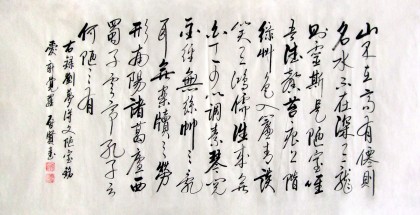 山不在高有僊則
名水不在深有龍
則靈斯是陋室唯
吾德馨苔痕上階
綠草色入簾青談
笑有鴻儒往來無
白丁可以調素琴閱
金經無絲竹之亂
耳無案牘之勞
形南陽諸葛廬西
蜀子雲亭孔子云
何陋之有
右録劉夢得文陋室銘